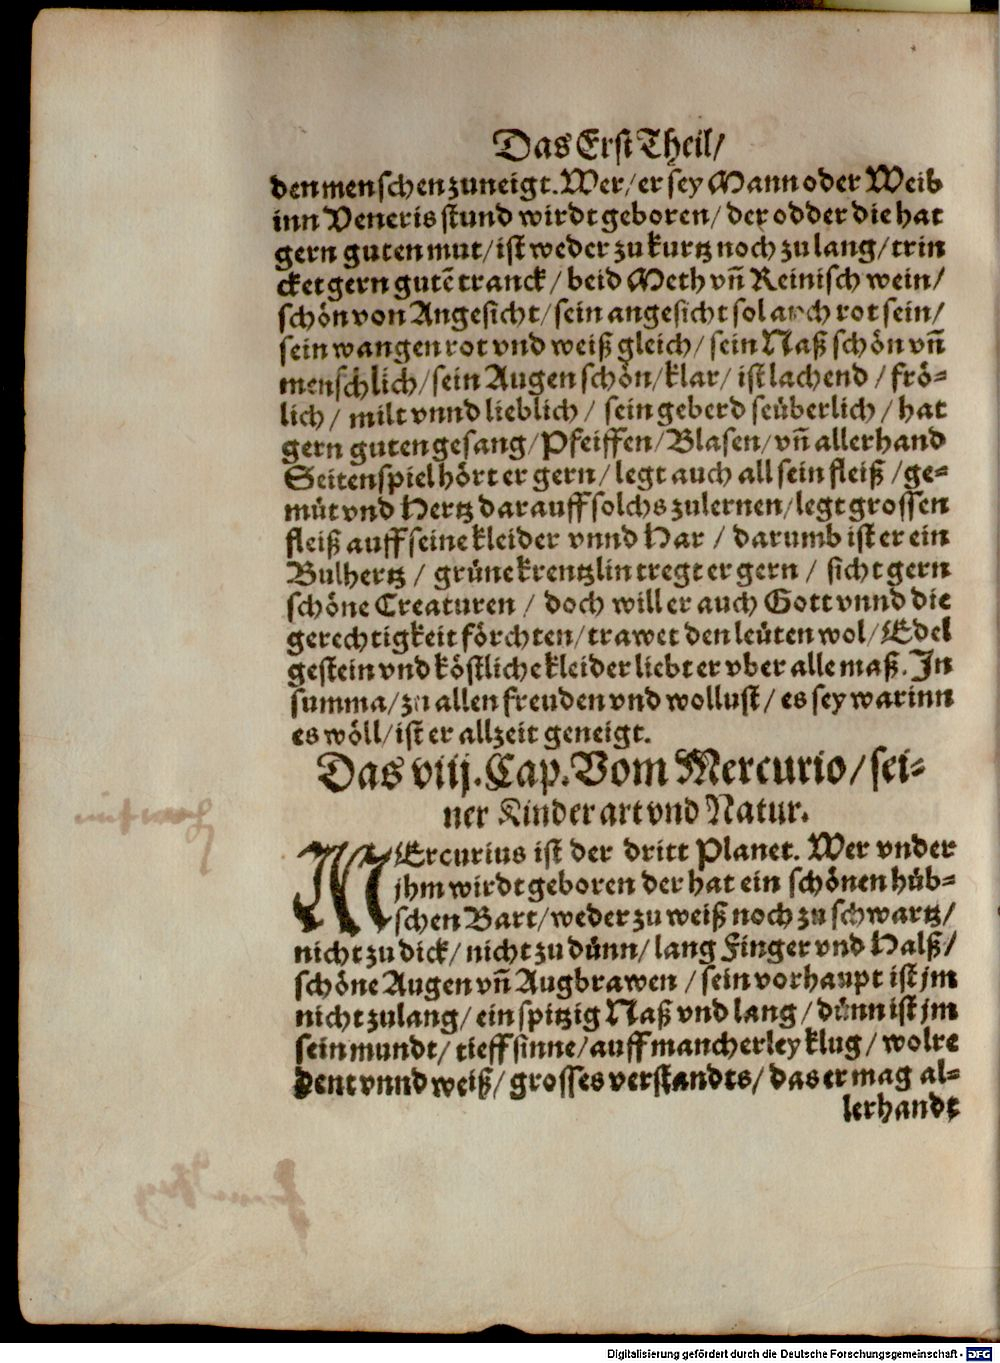 Das Erst Theil/
den menschen zuneigt. Wer/ er sey Mann oder Weib
inn Veneris stund wirdt geboren/ der odder die hat
gern guten mut/ ist weder zu kurtz noch zu lang/ trin
cket gern gutẽ tranck/ beid Meth vñ Reinisch wein/
schön von Angesicht/ sein angesicht sol auch rot sein/
sein wangen rot vnd weiß gleich/ sein Naß schön vñ
menschlich/ sein Augen schön/ klar/ ist lachend/ frö-
lich/ milt vnnd lieblich/ sein geberd seüberlich/ hat
gern guten gesang/ Pfeiffen/ Blasen/ vñ allerhand
Seitenspiel hört er gern/ legt auch all sein fleiß/ ge-
müt vnd Hertz darauff solchs zulernen/ legt grossen
fleiß auff seine kleider vnnd Har/ darumb ist er ein
Bulhertz/ grüne krentzlin tregt er gern/ sicht gern
schöne Creaturen/ doch will er auch Gott vnnd die
gerechtigkeit förchten/ trawet den leüten wol/ Edel
gestein vnd köstliche kleider liebt er vber alle maß. In
summa/ zu allen freuden vnd wollust/ es sey warinn
es wöll/ ist er allzeit geneigt.
Das viij. Cap. Vom Mercurio/ sei-
ner Kinder art vnd Natur.
MErcurius ist der dritt Planet. Wer vnder
jhm wirdt geboren der hat ein schönen hüb-
schen Bart/ weder zu weiß noch zu schwartz/
nicht zu dick/ nicht zu dünn/ lang Finger vnd Halß/
schöne Augen vñ Augbrawen/ sein vorhaupt ist jm
nicht zulang/ ein spitzig Naß vnd lang/ dünn ist jm
sein mundt/ tieff sinne/ auff mancherley klug/ wolre
dent vnnd weiß/ grosses verstandts/ das er mag al-
lerhandt
Digitalisierung gefördert durch die Deutsche Forschungsgemeinschaft - DFG